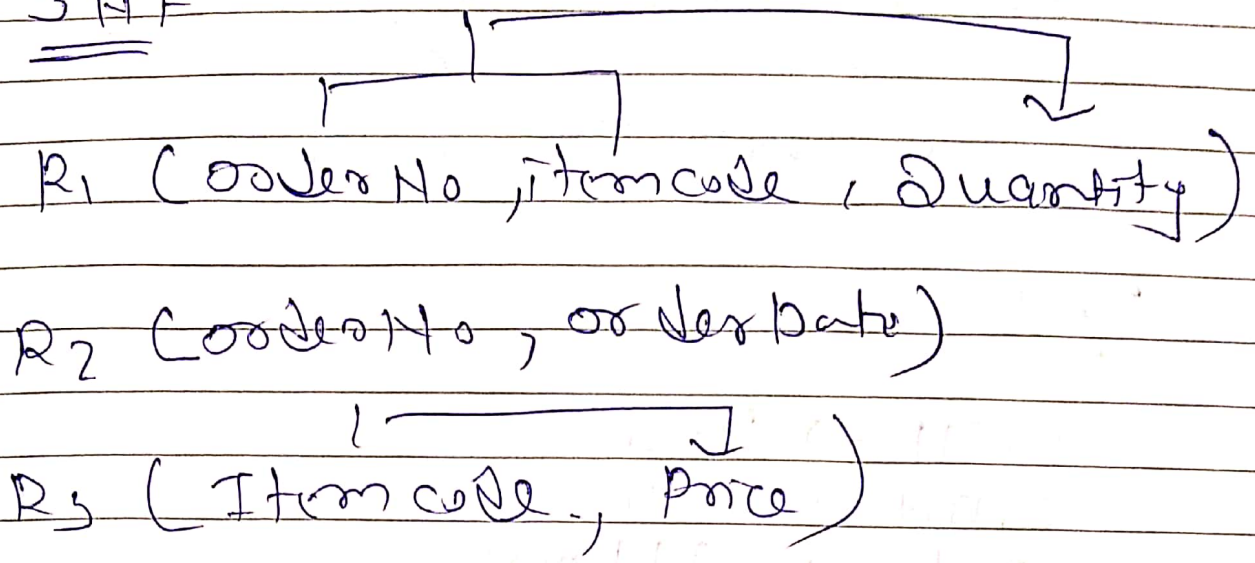 3NF
R1 (OrderNo, itemcode, Quantity)
R2 (OrderNo, orderDate)
R3 (Itemcode, Price)